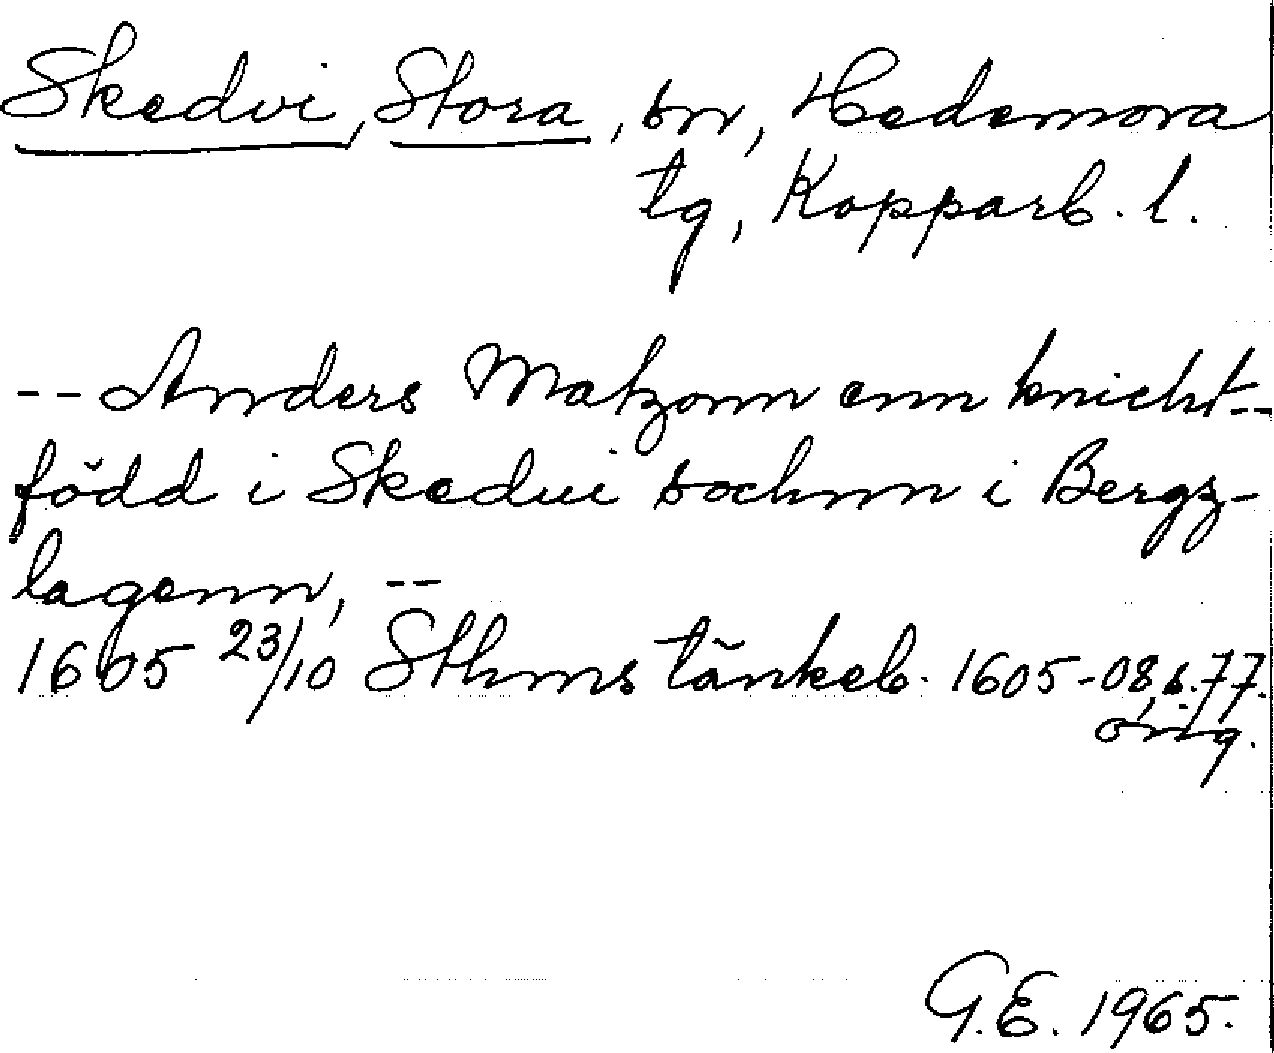 Skedvi, Stora, sn, Hedemora
tg, Kopparb. l.
-- Anders Matzonn enn knicht --
född i Skedui sochnn i Bergz-
lagenn, --
1605 23/10 Sthms tänkeb. 1605-08, s. 77.
orig.
G.E. 1965.